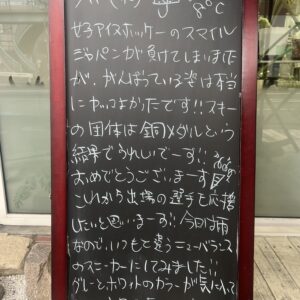 8℃
女子アイスホッケーのスマイル
ジャパンが負けてしまいました
が、がんばっている姿は本当
にかっこよかったです!!スキー
の団体は銅メダルという
結果でうれしいでーす!!
おめでとうございまーす
これから出場の選手も応援
したいと思いまーす!!今日は雨
なので、いつもと違うニューバランス
のスニーカーにしてみました!!
グレーとホワイトのカラーが気に入って